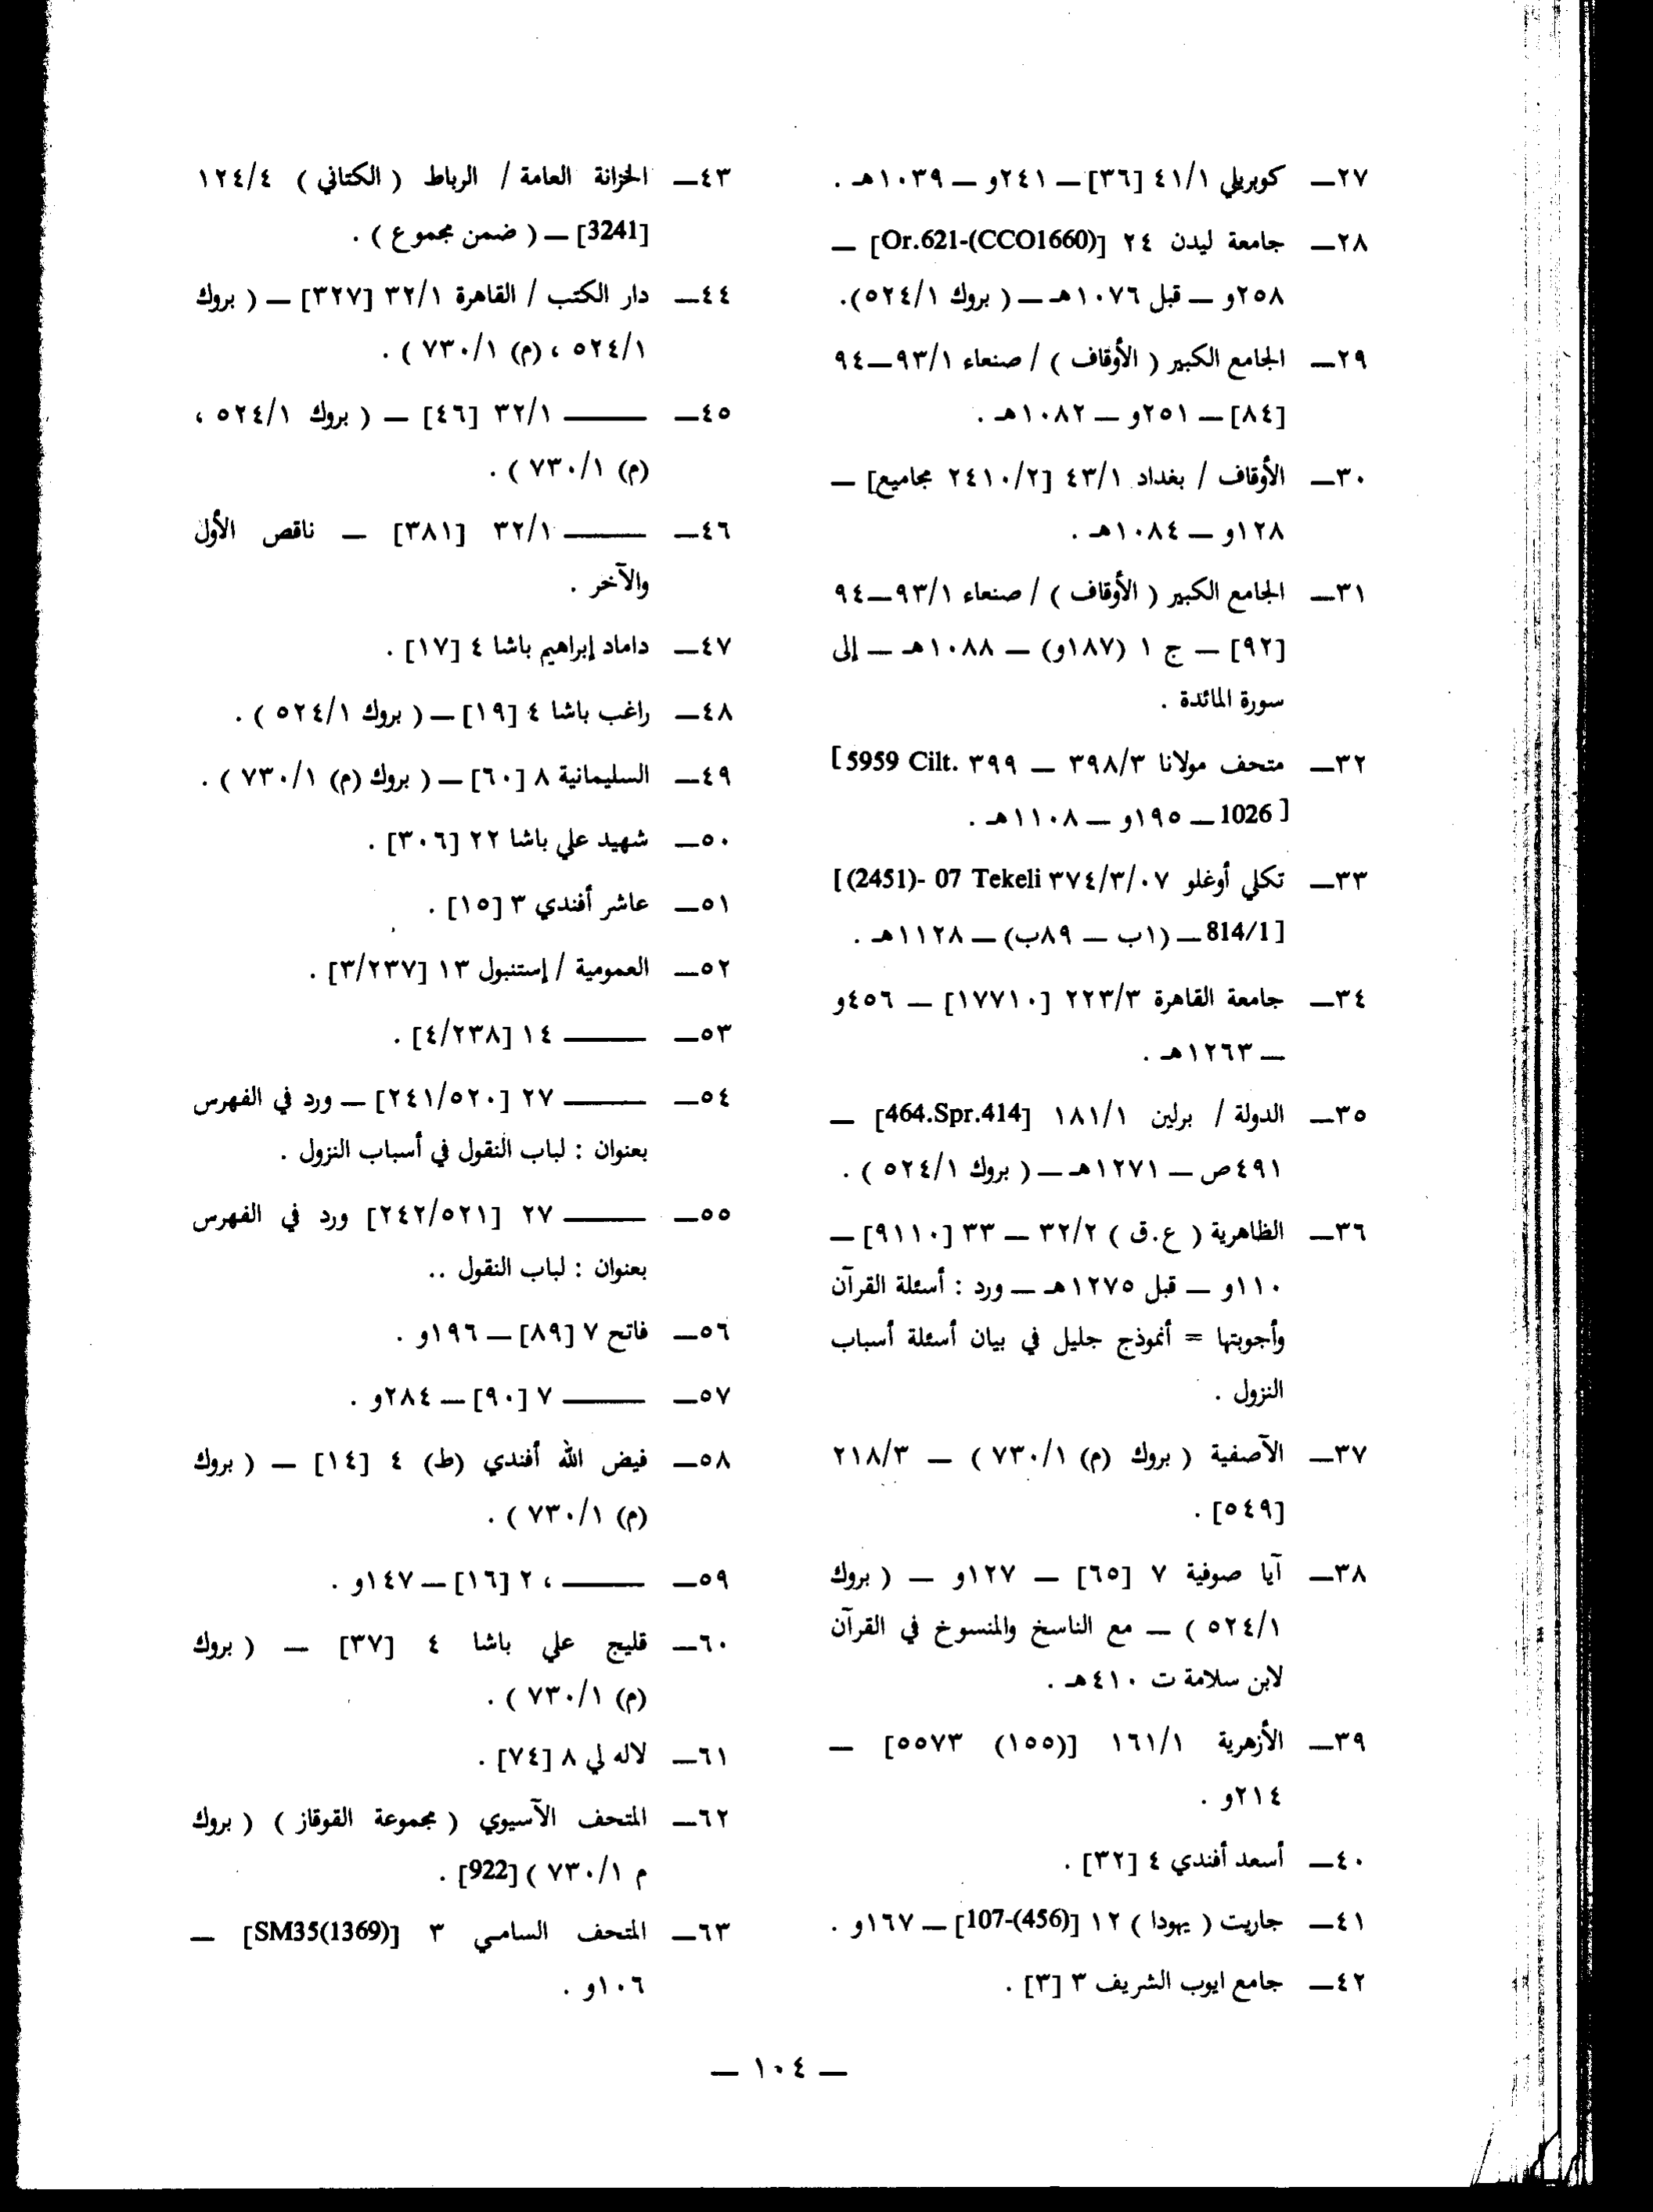 ٢٧— كوبريلي ٤١/١ [٣٦] — ٢٤١و — ١٠٣٩هـ .
٢٨— جامعة ليدن ٢٤ [Or.621-(CCO1660)] —
٢٥٨و — قبل ١٠٧٦هـ — ( بروك ٥٢٤/١).
٢٩— الجامع الكبير ( الأوقاف ) / صنعاء ٩٣/١—٩٤
[٨٤] — ٢٥١و — ١٠٨٢هـ .
٣٠— الأوقاف / بغداد ٤٣/١ [٢٤١٠/٢ مجاميع] —
١٢٨و — ١٠٨٤هـ .
٣١— الجامع الكبير ( الأوقاف ) / صنعاء ٩٣/١—٩٤
[٩٢] — ج ١ (١٨٧و) — ١٠٨٨هـ — إلى
سورة المائدة .
٣٢— متحف مولانا ٣٩٨/٣ — ٣٩٩ [5959 Cilt.
1026] — ١٩٥و — ١١٠٨هـ .
٣٣— تكلي أوغلو ٣٧٤/٣/٠٧ [(2451)- 07 Tekeli
814/1] — (١ب — ٨٩ب) — ١١٢٨هـ .
٣٤— جامعة القاهرة ٢٢٣/٣ [١٧٧١٠] — ٤٥٦و
— ١٢٦٣هـ .
٣٥— الدولة / برلين ١٨١/١ [464.Spr.414] —
٤٩١ص — ١٢٧١هـ — ( بروك ٥٢٤/١ ) .
٣٦— الظاهرية ( ع.ق ) ٣٢/٢ — ٣٣ [٩١١٠] —
١١٠و — قبل ١٢٧٥هـ — ورد : أسئلة القرآن
وأجوبتها = أنموذج جليل في بيان أسئلة أسباب
النزول .
٣٧— الآصفية ( بروك (م) ٧٣٠/١ ) — ٢١٨/٣
[٥٤٩] .
٣٨— آيا صوفية ٧ [٦٥] — ١٢٧و — ( بروك
٥٢٤/١ ) — مع الناسخ والمنسوخ في القرآن
لابن سلامة ت ٤١٠هـ .
٣٩— الأزهرية ١٦١/١ [(١٥٥) ٥٥٧٣] —
٢١٤و .
٤٠— أسعد أفندي ٤ [٣٢] .
٤١— جاريت ( يهودا ) ١٢ [107-(456)] — ١٦٧و .
٤٢— جامع ايوب الشريف ٣ [٣] .
٤٣— الخزانة العامة / الرباط ( الكتاني ) ١٢٤/٤
[3241] — ( ضمن مجموع ) .
٤٤— دار الكتب / القاهرة ٣٢/١ [٣٢٧] — ( بروك
٥٢٤/١ ، (م) ٧٣٠/١ ) .
٤٥— ——— ٣٢/١ [٤٦] — ( بروك ٥٢٤/١ ،
(م) ٧٣٠/١ ) .
٤٦— ——— ٣٢/١ [٣٨١] — ناقص الأول
والآخر .
٤٧— داماد إبراهيم باشا ٤ [١٧] .
٤٨— راغب باشا ٤ [١٩] — ( بروك ٥٢٤/١ ) .
٤٩— السليمانية ٨ [٦٠] — ( بروك (م) ٧٣٠/١ ) .
٥٠— شهيد علي باشا ٢٢ [٣٠٦] .
٥١— عاشر أفندي ٣ [١٥] .
٥٢— العمومية / إستنبول ١٣ [٣/٢٣٧] .
٥٣— ——— ١٤ [٤/٢٣٨] .
٥٤— ——— ٢٧ [٢٤١/٥٢٠] — ورد في الفهرس
بعنوان : لباب النقول في أسباب النزول .
٥٥— ——— ٢٧ [٢٤٢/٥٢١] ورد في الفهرس
بعنوان : لباب النقول ..
٥٦— فاتح ٧ [٨٩] — ١٩٦و .
٥٧— ——— ٧ [٩٠] — ٢٨٤و .
٥٨— فيض الله أفندي (ط) ٤ [١٤] — ( بروك
(م) ٧٣٠/١ ) .
٥٩— ——— ، ٢ [١٦] — ١٤٧و .
٦٠— قليج علي باشا ٤ [٣٧] — ( بروك
(م) ٧٣٠/١ ) .
٦١— لاله لي ٨ [٧٤] .
٦٢— المتحف الآسيوي ( مجموعة القوقاز ) ( بروك
م ٧٣٠/١ ) [922] .
٦٣— المتحف السامي ٣ [SM35(1369)] —
١٠٦و .
— ١٠٤ —